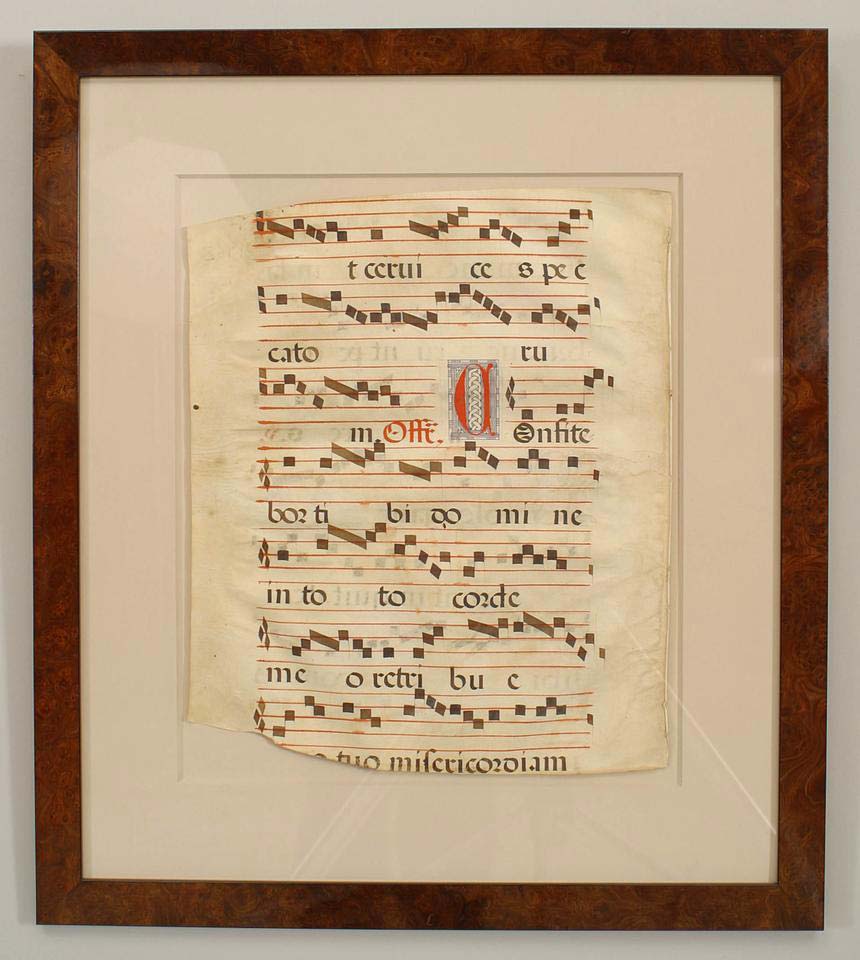 t cerui ce s pe c
cato ru
m. Offr. C Onfite
bor ti bi do mi ne
in to to corde
me o retri bu e
o tuo misericordiam